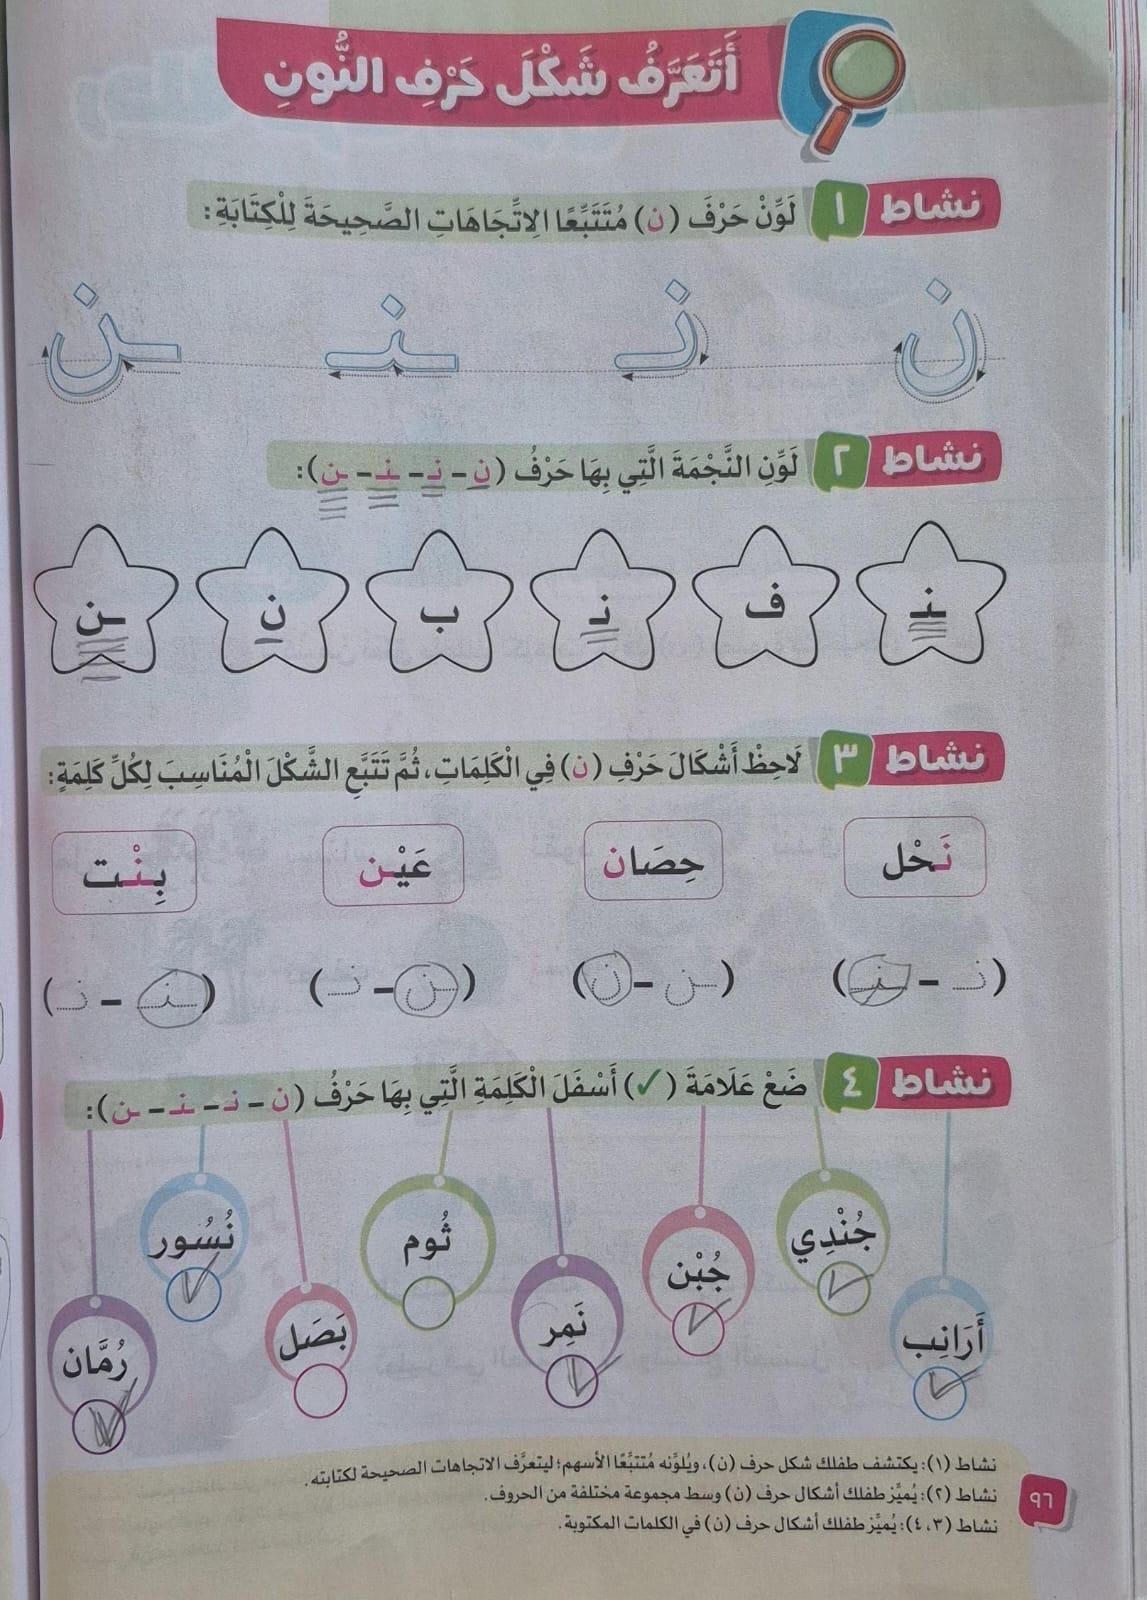 أَتَعَرَّفُ شَكْلَ حَرْفِ النُّونِ
نشاط ١ لَوِّنْ حَرْفَ (ن) مُتَتَبِّعًا الِاتِّجَاهَاتِ الصَّحِيحَةَ لِلْكِتَابَةِ:
ن نـ ـنـ ـن
نشاط ٢ لَوِّنِ النَّجْمَةَ الَّتِي بِهَا حَرْفُ (ن - نـ - ـنـ - ـن):
ـنـ ف نـ ب ن ـن
نشاط ٣ لَاحِظْ أَشْكَالَ حَرْفِ (ن) فِي الْكَلِمَاتِ، ثُمَّ تَتَبَّعِ الشَّكْلَ الْمُنَاسِبَ لِكُلِّ كَلِمَةٍ:
نَحْل حِصَان عَيْن بِنْت
(نـ - ـنـ) (ـن - ن) (ـن - نـ) (ـنـ - نـ)
نشاط ٤ ضَعْ عَلَامَةَ (✓) أَسْفَلَ الْكَلِمَةِ الَّتِي بِهَا حَرْفُ (ن - نـ - ـنـ - ـن):
أَرَانِب جُنْدِي جُبْن نَمِر ثُوم بَصَل نُسُور رُمَّان
نشاط (١): يكتشف طفلك شكل حرف (ن)، ويُلوِّنه مُتتبِّعًا الأسهم؛ ليتعرَّف الاتجاهات الصحيحة لكتابته.
نشاط (٢): يُميِّز طفلك أشكال حرف (ن) وسط مجموعة مختلفة من الحروف.
نشاط (٣، ٤): يُميِّز طفلك أشكال حرف (ن) في الكلمات المكتوبة.
٩٦